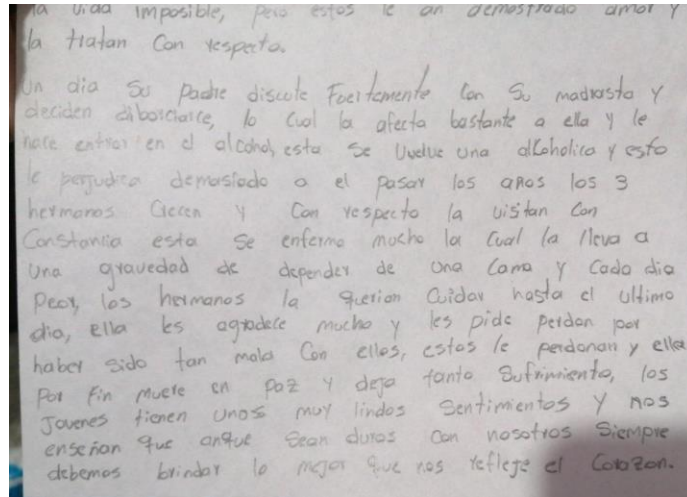 la vida imposible, pero estos le an demostrado amor y
la tratan con respecto.
Un dia su padre discute Fuertemente con su madrasta y
deciden diborciarce, lo cual la afecta bastante a ella y le
hace entrar en el alcohol, esta se vuelve una alcoholica y esto
le perjudica demasiado a el pasar los años los 3
hermanos crecen y con respecto la visitan con
Constancia esta se enfermo mucho la cual la lleva a
una gravedad de depender de una cama y cada dia
peor, los hermanos la querian cuidar hasta el ultimo
dia, ella les agradece mucho y les pide perdon por
haber sido tan mala con ellos, estos le perdonan y ella
por fin muere en paz y deja tanto sufrimiento, los
Jovenes tienen unos muy lindos sentimientos y nos
enseñan que anque sean duros con nosotros siempre
debemos brindar lo mejor que nos refleje el corazon.